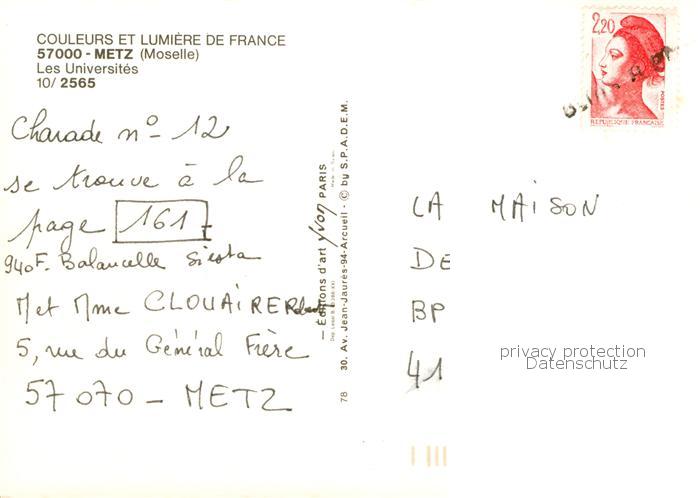 COULEURS ET LUMIÈRE DE FRANCE
57000 - METZ (Moselle)
Les Universités
10/ 2565
Charade nº 12
se trouve à la
page 161
940F. Balancelle Siesta
M et Mme CLOUAIRE
5, rue du Général Frère
57070 - METZ
— Éditions d'art Yvon PARIS
30, Av. Jean-Jaurès-94-Arcueil - © by S.P.A.D.E.M.
78
2,20
POSTES
REPUBLIQUE FRANÇAISE
LA MAISON
DE
BP
41
privacy protection
Datenschutz